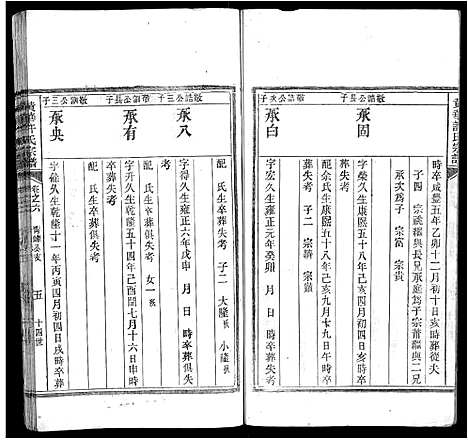 黃華許氏宗譜
時卒咸豐五年乙卯十二月初十日亥時葬從夫
子四 宗 繼與長兄承庭爲子 宗 繼與二兄
承次爲子 宗富 宗貴
敬誥公長子
承固
字榮久生康熙五十八年四月初四日亥時
卒葬失考
配余氏生康熙五十八年己亥九月廿九日午時卒
葬失考 子二 宗 宗
敬誥公次子
承白
字宏久生雍正元年癸卯 月 日 時卒葬失考
配 氏生卒葬失考 子二 大隆 小隆
敬 公三子
承八
字得久生雍正六年戊申 月 日 時卒葬俱失
考
配 氏生卒葬失考 女一
敬 公長子
承有
字升久生乾隆五十四年己酉閏七月十六日申時
卒葬失考
配 氏生卒葬俱失考
敬 公三子
承央
字 久生乾隆十一年丙寅四月初四日戌時卒葬
黃華許氏宗譜
卷之六
五
十四世